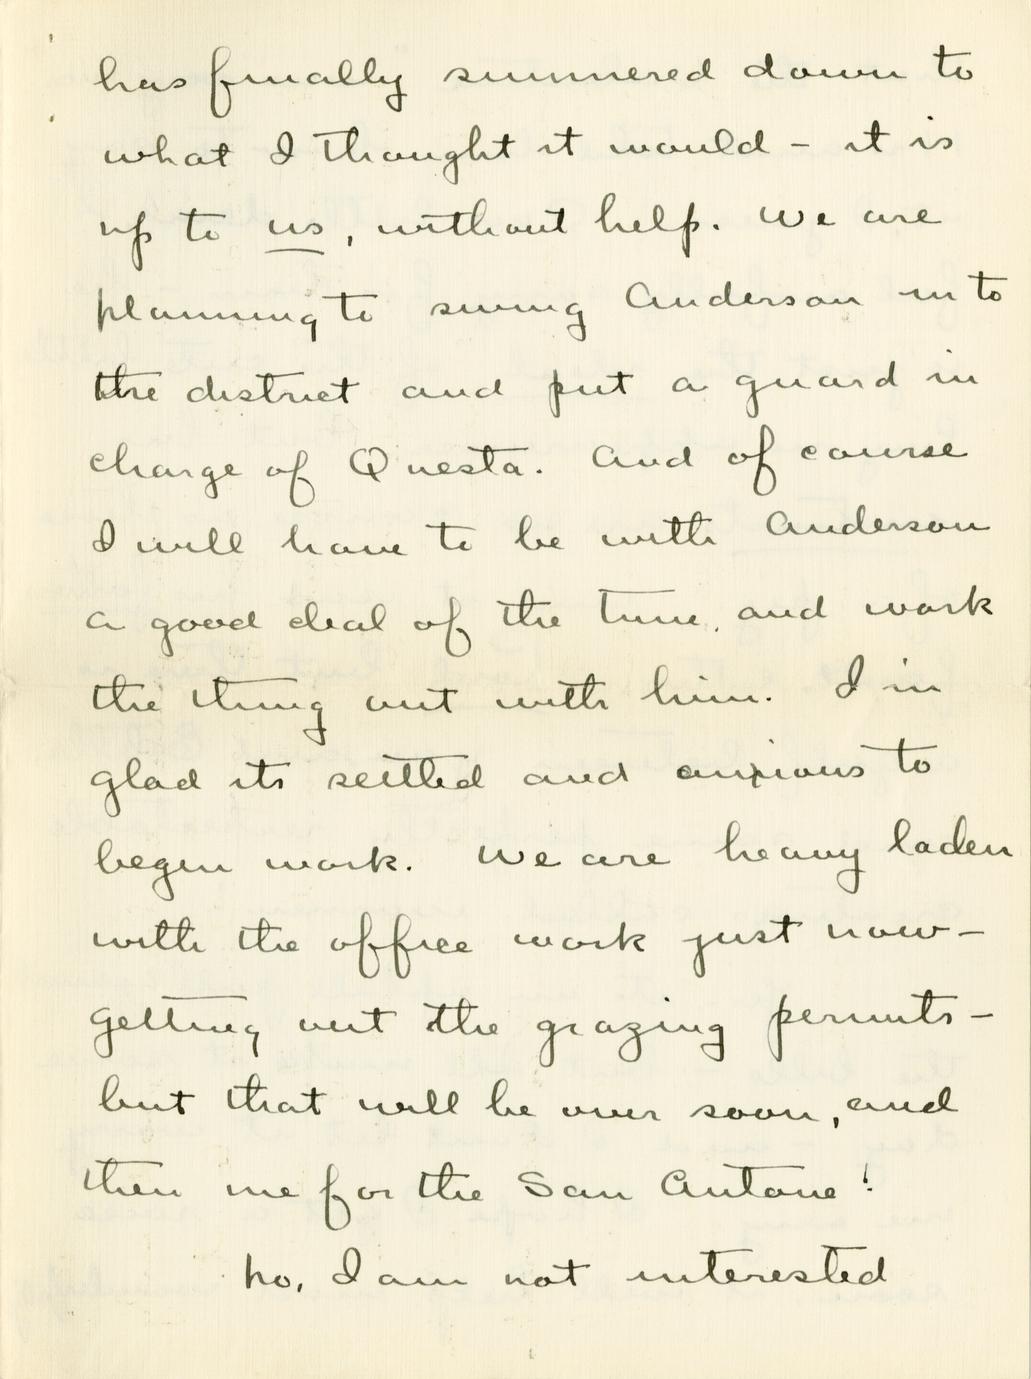 has finally simmered down to
what I thought it would - it is
up to us, without help. We are
planning to swing Anderson in to
the district and put a guard in
charge of Questa. And of course
I will have to be with Anderson
a good deal of the time, and work
the thing out with him. I'm
glad its settled and anxious to
begin work. We are heavy laden
with the office work just now -
getting out the grazing permits -
but that will be over soon, and
then me for the San Antone!
No, I am not interested